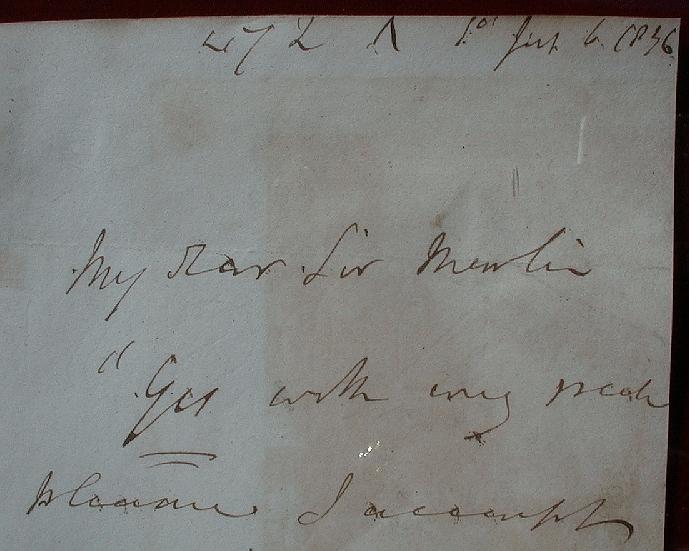 6. 1836
My dear Sir Merlin
"Yes with very great
pleasure I accept